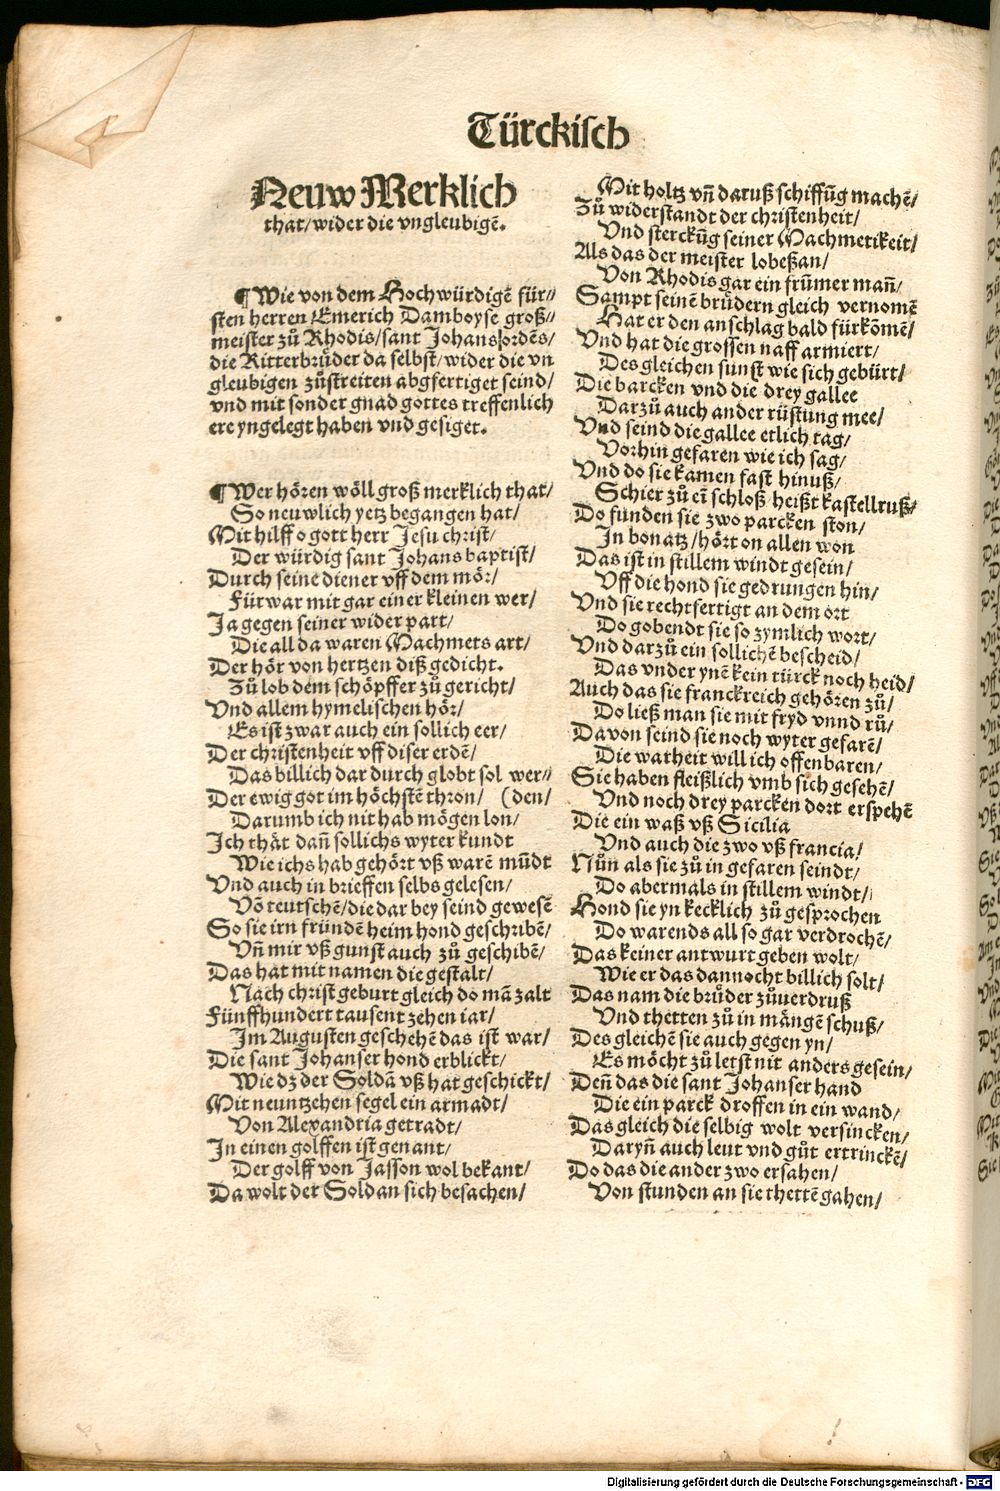 Türckisch
Neuw Merklich
that/wider die vngleubigē.
¶Wie von dem Hochwürdigē für⸗/
sten herren Emerich Damboyse groß⸗/
meister zů Rhodis/sant Johans ordēs/
die Ritterbrüder da selbst/wider die vn
gleubigen zůstreiten abgfertiget seind/
vnd mit sonder gnad gottes treffenlich
ere yngelegt haben vnd gesiget.
¶Wer hören wöll groß merklich that/
So neuwlich yetz begangen hat/
Mit hilff o gott herr Jesu christ/
Der würdig sant Johans baptist/
Durch seine diener vff dem mör/
Fürwar mit gar einer kleinen wer/
Ja gegen seiner wider part/
Die all da waren Machmets art/
Der hör von hertzen diß gedicht.
Zů lob dem schöpffer zů gericht/
Vnd allem hymelischen hör/
Es ist zwar auch ein sollich eer/
Der christenheit vff diser erdē/
Das billich dar durch globt sol wer⸗/
Der ewig got im höchstē thron/ (den/
Darumb ich nit hab mögen lon/
Ich thät dañ sollichs wyter kundt
Wie ichs hab gehört vß warē mūdt
Vnd auch in brieffen selbs gelesen/
Võ teutschē/die dar bey seind gewesē
So sie irn fründē heim hond geschribē/
Vñ mir vß gunst auch zů geschibē/
Das hat mit namen die gestalt/
Nach christ geburt gleich do mā zalt
Fünffhundert tausent zehen iar/
Im Augusten geschehē das ist war/
Die sant Johanser hond erblickt/
Wie dz der Soldā vß hat geschickt/
Mit neuntzehen segel ein armadt/
Von Alexandria getradt/
In einen golffen ist gen ant/
Der golff von Jasson wol bekant/
Da wolt der Soldan sich besachen/
Mit holtz vñ daruß schiffūg machē/
Zů widerstandt der christenheit/
Vnd sterckūg seiner Machmetikeit/
Als das der meister lobeßan/
Von Rhodis gar ein frūmer mañ/
Sampt seinē brüdern gleich vernomē
Hat er den anschlag bald fürkōmē/
Vnd hat die grossen naff armiert/
Des gleichen sunst wie sich gebürt/
Die barcken vnd die drey gallee
Darzů auch ander rüstung mee/
Vnd seind die gallee etlich tag/
Vorhin gefaren wie ich sag/
Vnd do sie kamen fast hinuß/
Schier zů eī schloß heißt kastellruß/
Do funden sie zwo parcken ston/
In bonatz/hört on allen won
Das ist in stillem windt gesein/
Vff die hond sie gedrungen hin/
Vnd sie rechtfertigt an dem ort
Do gobendt sie so zymlich wort/
Vnd darzů ein sollichē bescheid/
Das vnder ynē kein türck noch heid/
Auch das sie franckreich gehören zů/
Do ließ man sie mit fryd vnnd rů/
Davon seind sie noch wyter gefarē/
Die warheit will ich offenbaren/
Sie haben fleißlich vmb sich gesehē/
Vnd noch drey parcken dort erspehē
Die ein waß vß Sicilia
Vnd auch die zwo vß francia/
Nůn als sie zů in gefaren seindt/
Do abermals in stillem windt/
Hond sie yn kecklich zů gesprochen
Do warends all so gar verdrochē/
Das keiner antwurt geben wolt/
Wie er das dannocht billich solt/
Das nam die brüder zůuerdruß
Vnd thetten zů in mängē schuß/
Des gleichē sie auch gegen yn/
Es möcht zů letst nit anders gesein/
Deñ das die sant Johanser hand
Die ein parck droffen in ein wand/
Das gleich die selbig wolt versincken/
Daryñ auch leut vnd gůt ertrinckē/
Do das die ander zwo ersahen/
Von stunden an sie thettē gahen/
Digitalisierung gefördert durch die Deutsche Forschungsgemeinschaft - DFG